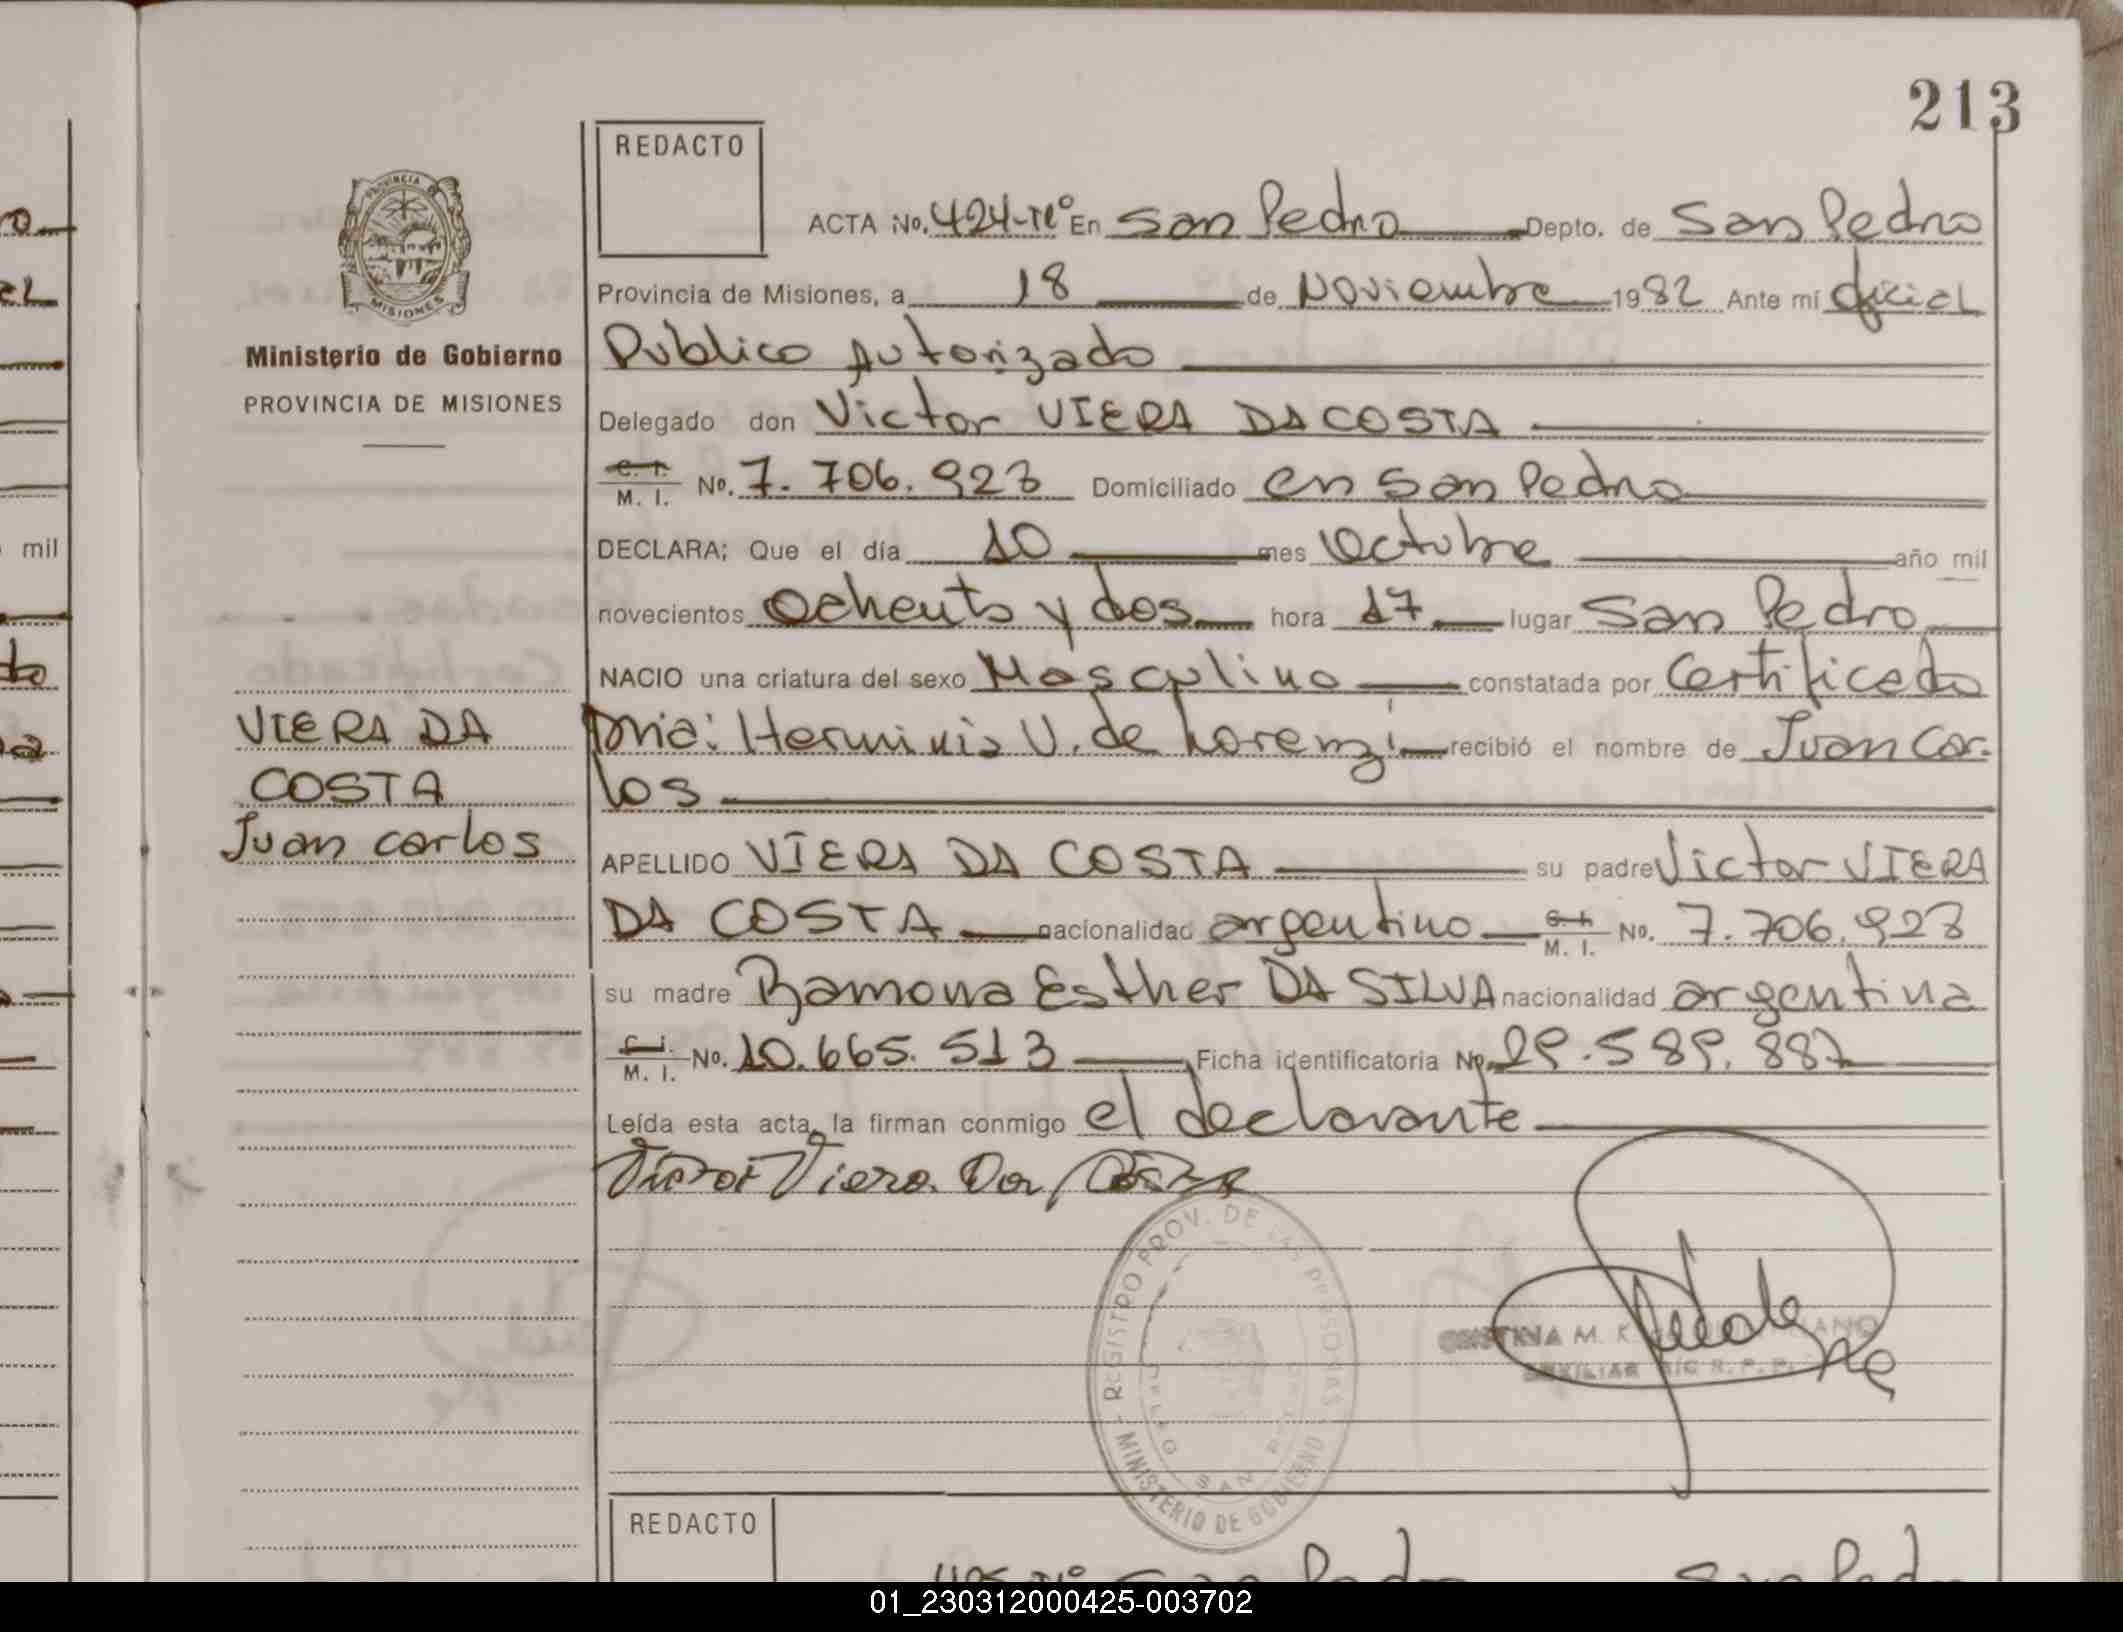 213
REDACTO
ACTA No. 424-Tº En San Pedro Depto. de San Pedro
Provincia de Misiones, a 18 de Noviembre 1982 Ante mí Oficial
Publico Autorizado
Delegado don Victor VIERA DA COSTA
C. I. M. I. No. 7.706.923 Domiciliado en San Pedro
DECLARA; Que el día 10 mes Octubre año mil
novecientos Ochenta y dos hora 17 lugar San Pedro
NACIO una criatura del sexo Masculino constatada por Certificado
Herminia V. de Lorenzi recibió el nombre de Juan Car-
los
APELLIDO VIERA DA COSTA su padre Victor VIERA
DA COSTA nacionalidad argentino C. I. M. I. No. 7.706.923
su madre Ramona Esther DA SILVA nacionalidad argentina
C. I. M. I. No. 10.665.513 Ficha identificatoria No. 29.589.887
Leída esta acta, la firman conmigo el declarante
Victor Viera Da Costa
PROVINCIA
MISIONES
Ministerio de Gobierno
PROVINCIA DE MISIONES
VIERA DA
COSTA
Juan Carlos
REGISTRO PROV. DE LAS PERSONAS
MINISTERIO DE GOBIERNO
SAN PEDRO
CRISTINA M. K.
AUXILIAR R. P. P.
REDACTO
mil
San Pedro San Pedro
01_230312000425-003702